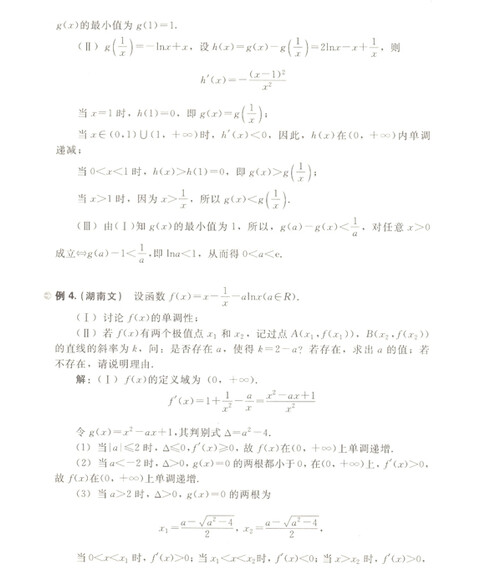 g(x)的最小值为 g(1)=1.
(Ⅱ) g(1/x)=-lnx+x，设 h(x)=g(x)-g(1/x)=2lnx-x+1/x，则
h′(x)=-(x-1)²/x²
当 x=1 时，h(1)=0，即 g(x)=g(1/x)；
当 x∈(0,1)∪(1，+∞)时，h′(x)<0，因此，h(x)在(0，+∞)内单调
递减；
当 0<x<1 时，h(x)>h(1)=0，即 g(x)>g(1/x)；
当 x>1 时，因为 x>1/x，所以 g(x)<g(1/x).
(Ⅲ) 由(Ⅰ)知 g(x)的最小值为 1，所以，g(a)-g(x)<1/a，对任意 x>0
成立⇔g(a)-1<1/a,即 lna<1，从而得 0<a<e.
例 4.(湖南文) 设函数 f(x)=x-1/x-alnx(a∈R).
(Ⅰ) 讨论 f(x)的单调性；
(Ⅱ) 若 f(x)有两个极值点 x₁ 和 x₂，记过点 A(x₁,f(x₁))，B(x₂,f(x₂))
的直线的斜率为 k，问：是否存在 a，使得 k=2-a？若存在，求出 a 的值；若
不存在，请说明理由.
解：(Ⅰ) f(x)的定义域为 (0，+∞).
f′(x)=1+1/x²-a/x=(x²-ax+1)/x²
令 g(x)=x²-ax+1,其判别式 Δ=a²-4.
(1) 当|a|≤2 时，Δ≤0,f′(x)≥0，故 f(x)在(0，+∞)上单调递增.
(2) 当 a<-2 时，Δ>0，g(x)=0 的两根都小于 0，在(0，+∞)上，f′(x)>0，
故 f(x)在(0，+∞)上单调递增.
(3) 当 a>2 时，Δ>0，g(x)=0 的两根为
x₁=(a-√(a²-4))/2，x₂=(a-√(a²-4))/2，
当 0<x<x₁ 时，f′(x)>0；当 x₁<x<x₂时，f′(x)<0；当 x>x₂ 时，f′(x)>0，